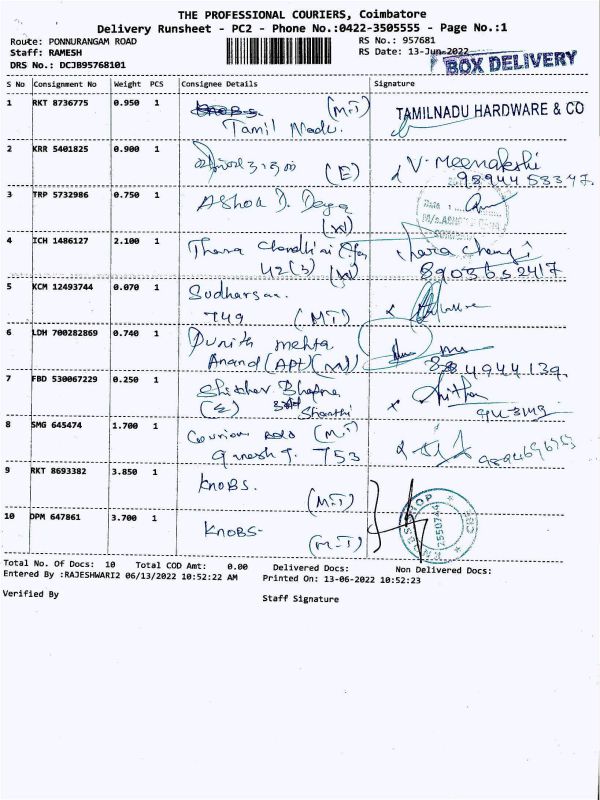 THE PROFESSIONAL COURIERS, Coimbatore
Delivery Runsheet - PC2 - Phone No.:0422-3505555 - Page No.:1
Route: PONNURANGAM ROAD RS No.: 957681
Staff: RAMESH RS Date: 13-Jun-2022
DRS No.: DCJB95768101 BOX DELIVERY
S No Consignment No Weight PCS Consignee Details Signature
1 RKT 8736775 0.950 1 (M.T) TAMILNADU HARDWARE & CO
Tamil Nadu.
2 KRR 5401825 0.900 1 (E) V. Meenakshi
3 TRP 5732986 0.750 1 Ashok J. Daga
(W)
4 ICH 1486127 2.100 1 Thara
42(3) (W) 8903652417
5 KCM 12493744 0.070 1 Sudharsan.
749 (M.T)
6 LDH 700282869 0.740 1 Punith mehta
Anand (Apt) (W)
7 FBD 530067229 0.250 1
(E) Shanthi
8 SMG 645474 1.700 1 (M.T)
753
9 RKT 8693382 3.850 1 KNOBS.
(M.T)
10 DPM 647861 3.700 1 KNOBS-
(M.T)
KNOBS SHOP CBE
Total No. Of Docs: 10 Total COD Amt: 0.00 Delivered Docs: Non Delivered Docs:
Entered By :RAJESHWARI2 06/13/2022 10:52:22 AM Printed On: 13-06-2022 10:52:23
Verified By Staff Signature